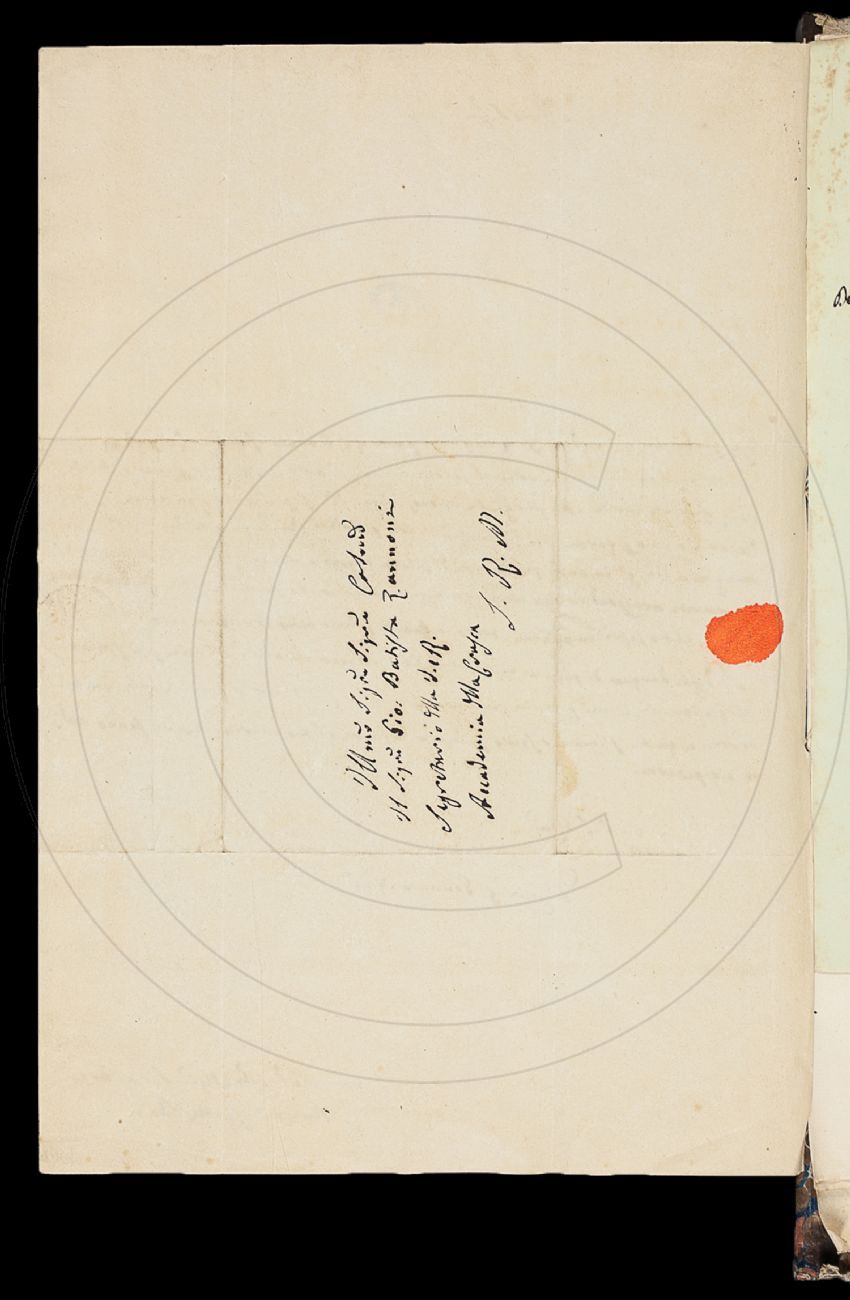 Illmo Sigre Sigre
Il Sigre Gio: Batista Zannoni
Segretario della I. e R.
Accademia della Crusca
S. R. M.